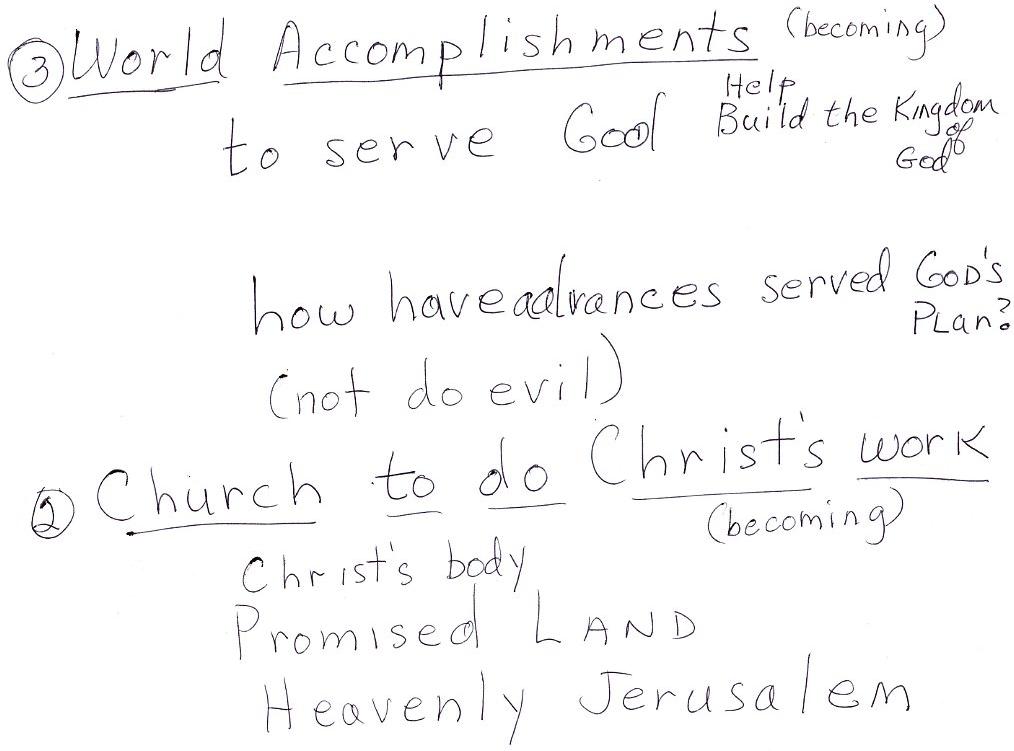 ③ World Accomplishments (becoming)
to serve God Help
Build the Kingdom
of
God
how have advances served GOD's
PLan?
(not do evil)
② Church to do Christ's work
(becoming)
Christ's body
Promised LAND
Heavenly Jerusalem